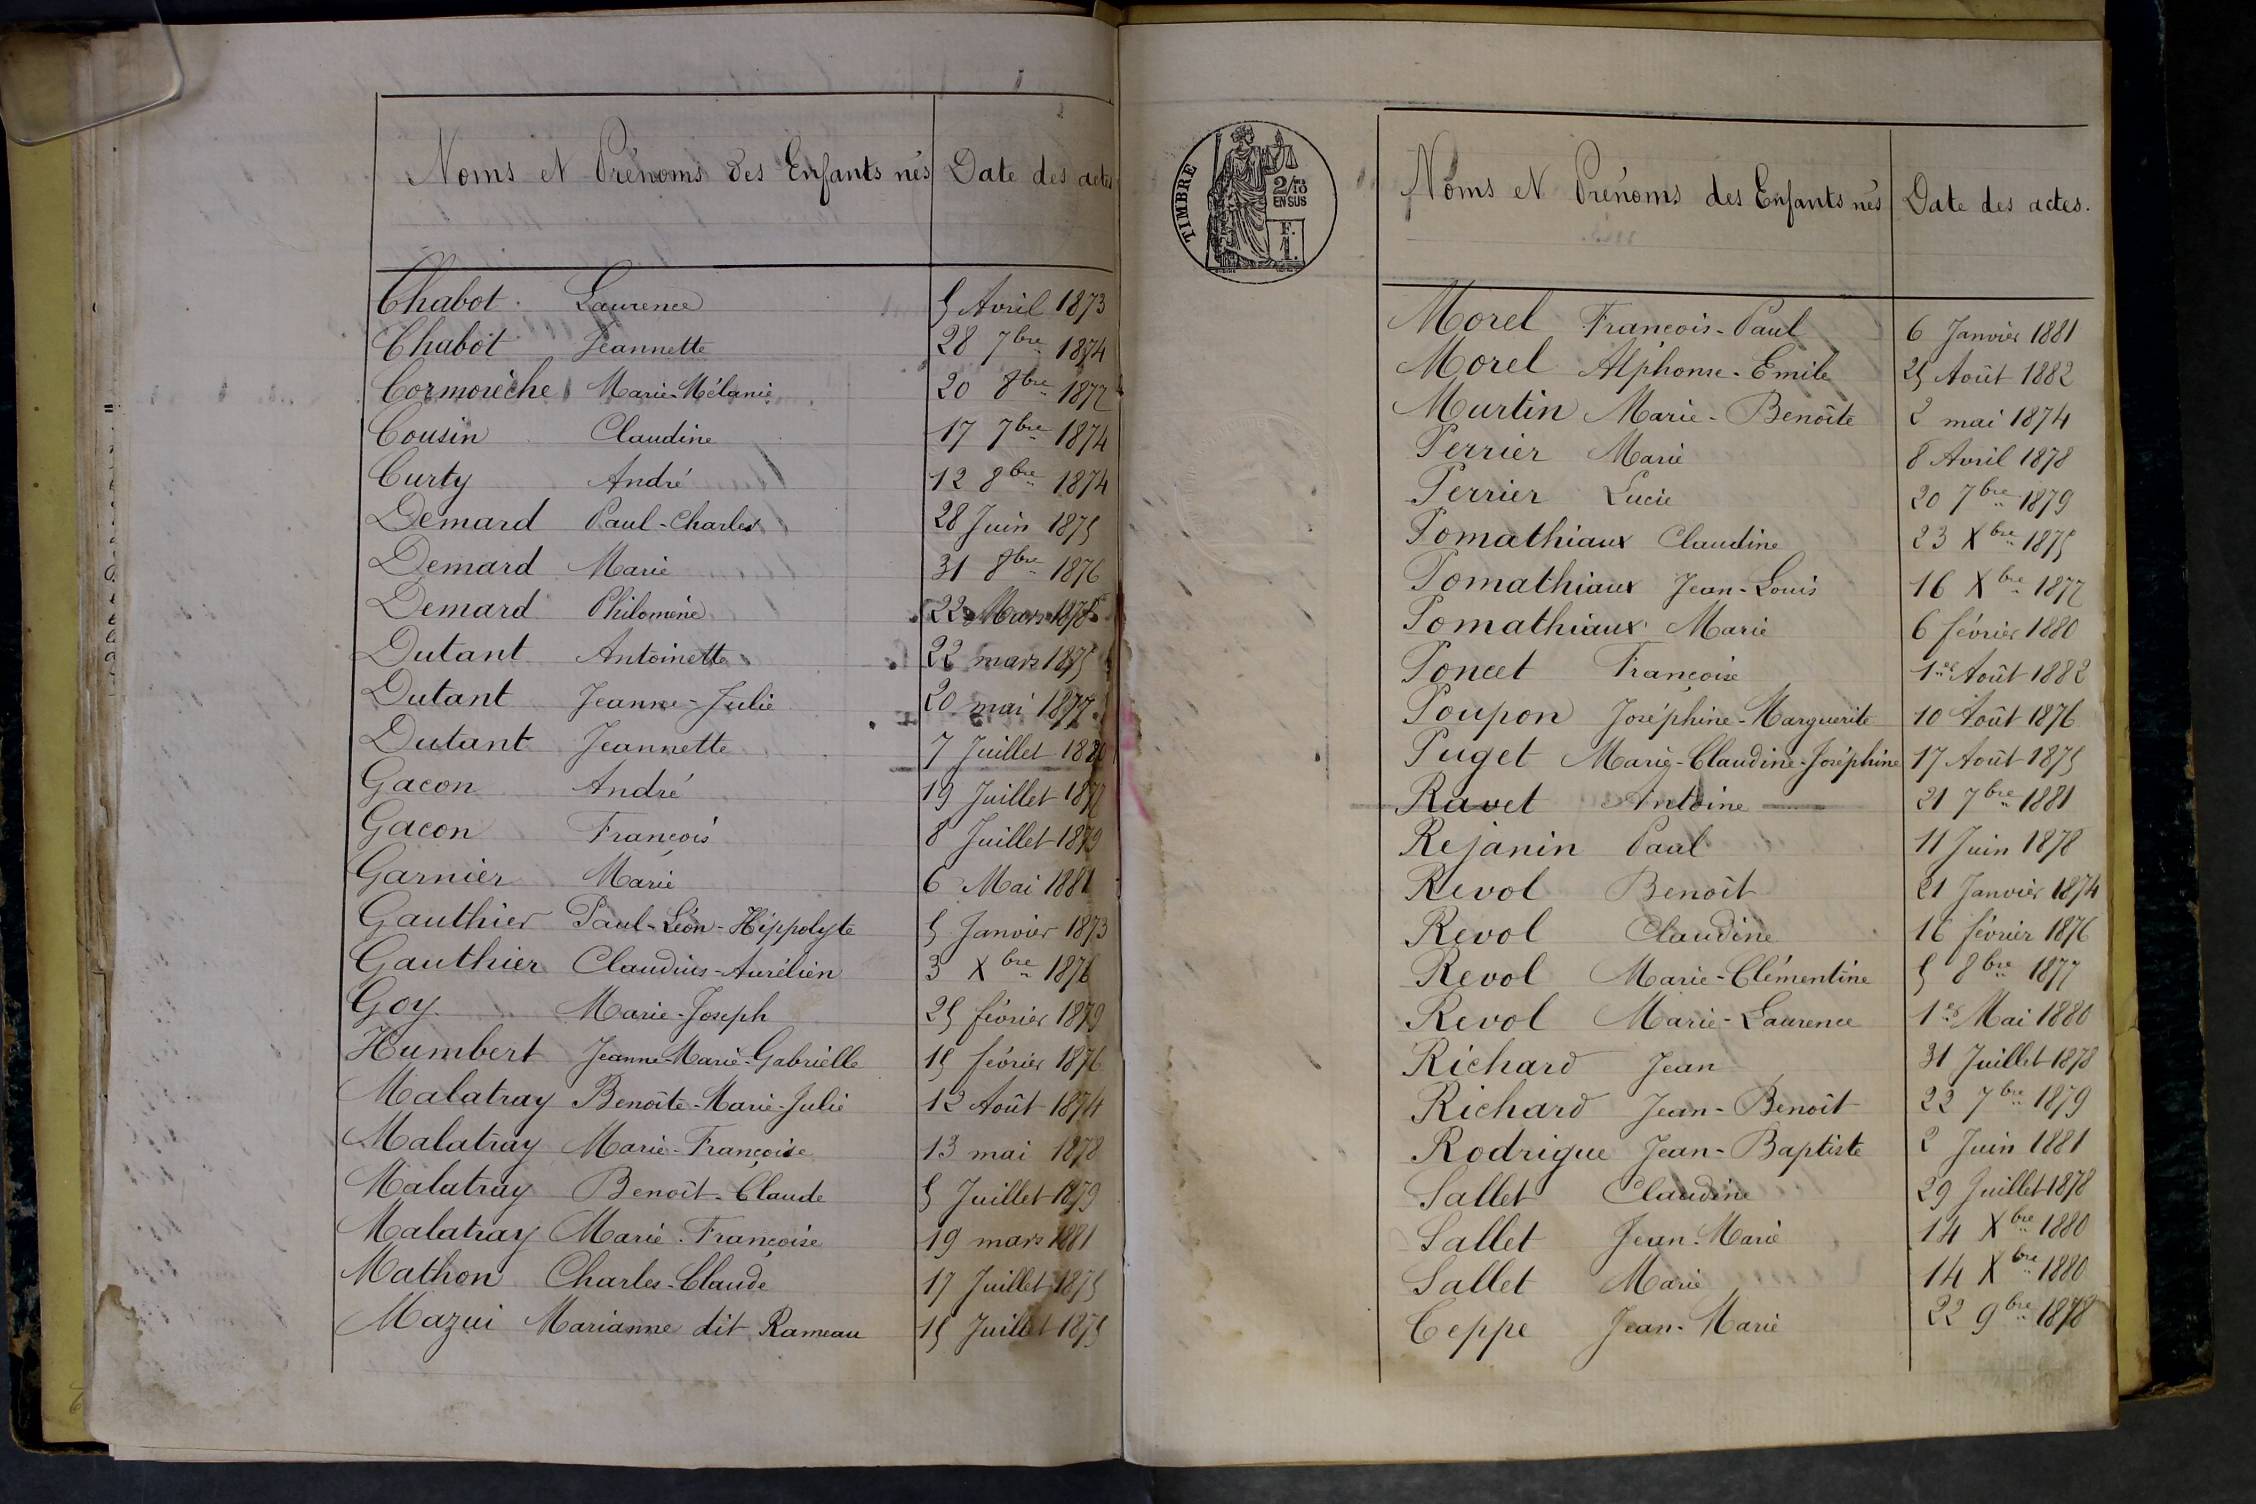 Noms et Prénoms des Enfants nés Date des actes
Chabot Laurence 5 Avril 1873
Chabot Jeannette 28 7bre 1874
Cormorèche Marie-Mélanie 20 8bre 1877
Cousin Claudine 17 7bre 1874
Curty André 12 8bre 1874
Demard Paul-Charles 28 Juin 1875
Demard Marie 31 8bre 1876
Demard Philomène 22 Mars 1878
Dutant Antoinette 22 mars 1875
Dutant Jeanne-Julie 20 mai 1877
Dutant Jeannette 7 Juillet 1880
Gacon André 19 Juillet 1877
Gacon François 8 Juillet 1879
Garnier Marie 6 Mai 1881
Gauthier Paul-Léon-Hippolyte 5 Janvier 1873
Gauthier Claudius-Aurélien 3 Xbre 1876
Goy Marie-Joseph 25 février 1879
Humbert Jeanne-Marie-Gabrielle 15 février 1876
Malatray Benoîte-Marie-Julie 12 Août 1874
Malatray Marie-Françoise 13 mai 1878
Malatray Benoît-Claude 5 Juillet 1879
Malatray Marie-Françoise 19 mars 1881
Mathon Charles-Claude 17 Juillet 1875
Mazui Marianne dit Rameau 15 Juillet 1875
TIMBRE
2/10
EN SUS
F.
1.
Noms et Prénoms des Enfants nés Date des actes.
Morel François-Paul 6 Janvier 1881
Morel Alphonse-Emile 25 Août 1882
Murtin Marie-Benoîte 2 mai 1874
Perrier Marie 8 Avril 1878
Perrier Lucie 20 7bre 1879
Pomathiaux Claudine 23 Xbre 1875
Pomathiaux Jean-Louis 16 Xbre 1877
Pomathiaux Marie 6 février 1880
Poncet Françoise 1er Août 1882
Poupon Joséphine-Marguerite 10 Août 1876
Puget Marie-Claudine-Joséphine 17 Août 1875
Ravet Antoine 21 7bre 1881
Rejanin Paul 11 Juin 1878
Revol Benoît 21 Janvier 1874
Revol Claudine 16 février 1876
Revol Marie-Clémentine 5 8bre 1877
Revol Marie-Laurence 1er Mai 1880
Richard Jean 31 Juillet 1878
Richard Jean-Benoît 22 7bre 1879
Rodrigue Jean-Baptiste 2 Juin 1881
Sallet Claudine 29 Juillet 1878
Sallet Jean-Marie 14 Xbre 1880
Sallet Marie 14 Xbre 1880
Ceppe Jean-Marie 22 9bre 1878